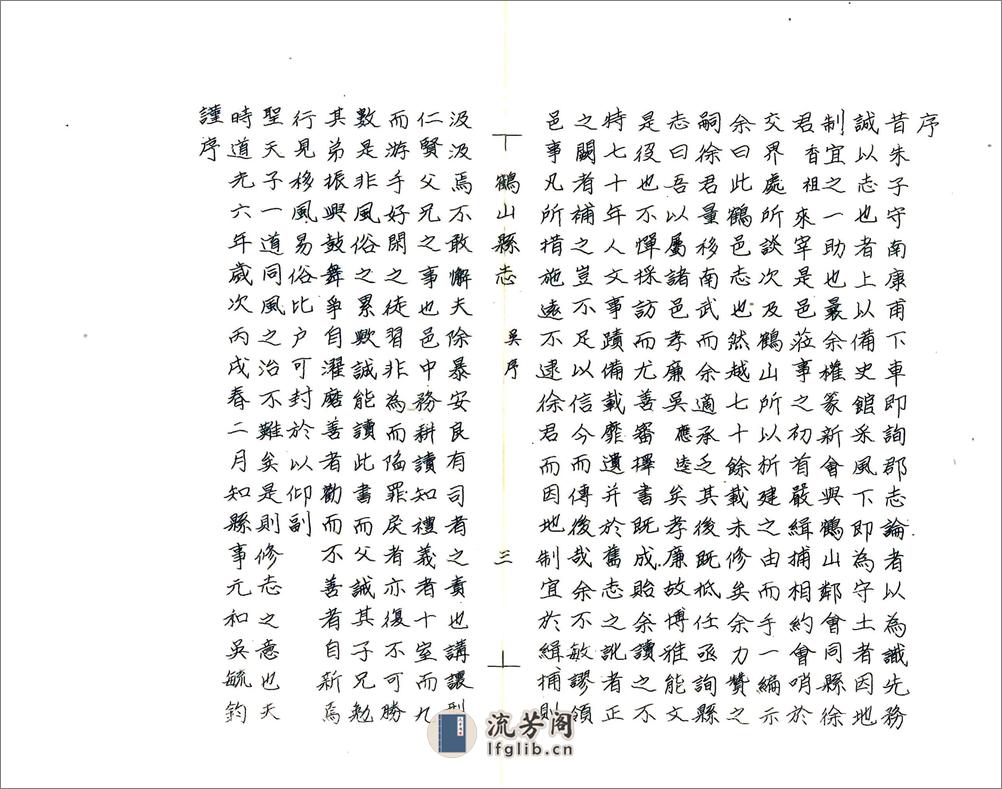 序
昔朱子守南康甫下車即詢郡志論者以為識先務
誠以志也者上以備史館采風下即為守土者因地
制宜之一助也曩余權篆新會與鶴山鄰會同縣徐
君香祖來宰是邑莅事之初首嚴緝捕相約會哨於
交界處所談次及鶴山所以析建之由而手一編示
余曰此鶴邑志也然越七十餘載未修矣余力贊之
嗣徐君量移南武而余適承乏其後既抵任亟詢縣
志曰吾以屬諸邑孝廉吳應逵矣孝廉故博雅能文
是役也不憚採訪而尤善審擇書既成貽余讀之不
特七十年人文事蹟備載靡遺并於舊志之訛者正
之闕者補之豈不足以信今而傳後哉余不敏謬領
邑事凡所措施遠不逮徐君而因地制宜於緝捕則
鶴山縣志 吳序 三
汲汲焉不敢懈夫除暴安良有司者之責也講讓型
仁賢父兄之事也邑中務耕讀知禮義者十室而九
而游手好閑之徒習非為而陷罪戾者亦復不可勝
數是非風俗之累歟誠能讀此書而父誡其子兄勉
其弟振興鼓舞爭自濯磨善者勸而不善者自新焉
行見移風易俗比户可封於以仰副
聖天子一道同風之治不難矣是則修志之意也夫
時道光六年歲次丙戌春二月知縣事元和吳毓鈞
謹序
流芳阁
lfglib.cn